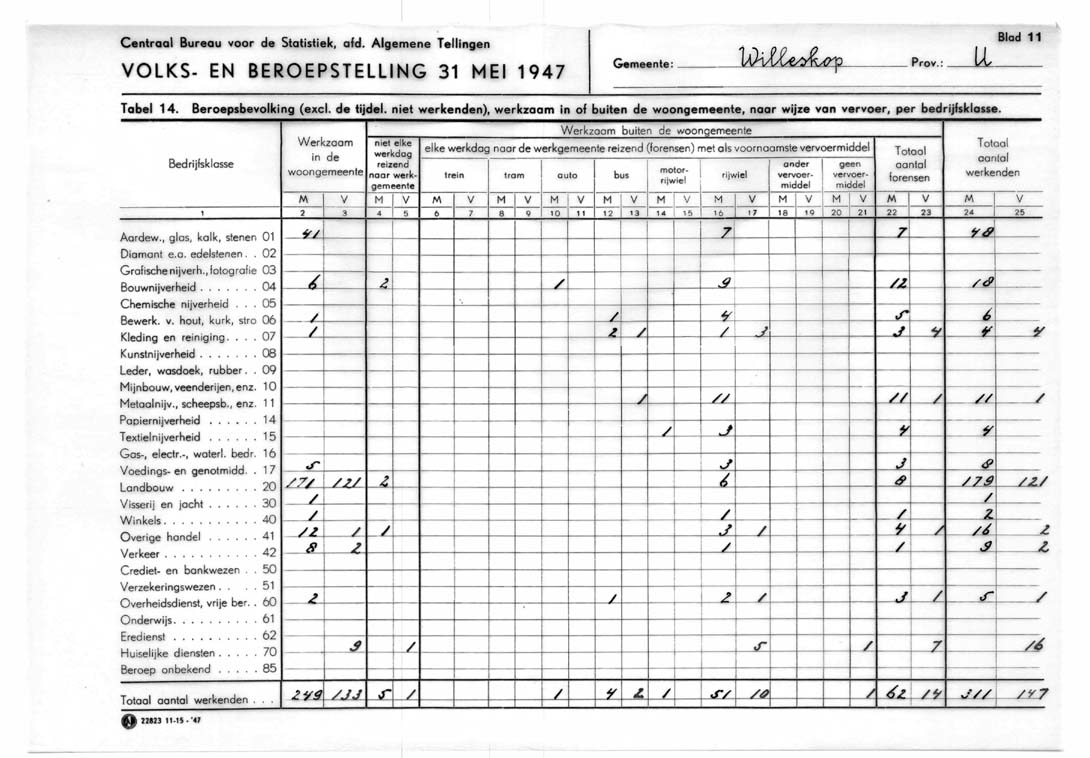 Centraal Bureau voor de Statistiek, afd. Algemene Tellingen
VOLKS- EN BEROEPSTELLING 31 MEI 1947
Gemeente: Willeskop Prov.: U
Blad 11
Tabel 14. Beroepsbevolking (excl. de tijdel. niet werkenden), werkzaam in of buiten de woongemeente, naar wijze van vervoer, per bedrijfsklasse.
Bedrijfsklasse
Werkzaam in de woongemeente
Werkzaam buiten de woongemeente
niet elke werkdag reizend naar werkgemeente
elke werkdag naar de werkgemeente reizend (forensen) met als voornaamste vervoermiddel
trein tram auto bus motorrijwiel rijwiel ander vervoermiddel geen vervoermiddel
Totaal aantal forensen
Totaal aantal werkenden
M V M V M V M V M V M V M V M V M V M V M V M V
1 2 3 4 5 6 7 8 9 10 11 12 13 14 15 16 17 18 19 20 21 22 23 24 25
Aardew., glas, kalk, stenen 01 41 7 7 48
Diamant e.a. edelstenen . . 02
Grafische nijverh., fotografie 03
Bouwnijverheid . . . . . . . 04 6 2 1 9 12 18
Chemische nijverheid . . . 05
Bewerk. v. hout, kurk, stro 06 1 1 4 5 6
Kleding en reiniging. . . . 07 1 2 1 1 3 3 4 4 4
Kunstnijverheid . . . . . . . 08
Leder, wasdoek, rubber. . 09
Mijnbouw, veenderijen, enz. 10
Metaalnijv., scheepsb., enz. 11 1 11 11 1 11 1
Papiernijverheid . . . . . . 14
Textielnijverheid . . . . . . 15 1 3 4 4
Gas-, electr.-, waterl. bedr. 16
Voedings- en genotmidd. . 17 5 3 3 8
Landbouw . . . . . . . . . 20 171 121 2 6 8 179 121
Visserij en jacht . . . . . . 30 1 1
Winkels. . . . . . . . . . . 40 1 1 1 2
Overige handel . . . . . . 41 12 1 1 3 1 4 1 16 2
Verkeer . . . . . . . . . . . 42 8 2 1 1 9 2
Crediet- en bankwezen . . 50
Verzekeringswezen. . . 51
Overheidsdienst, vrije ber. . 60 2 1 2 1 3 1 5 1
Onderwijs. . . . . . . . . . 61
Eredienst . . . . . . . . . . 62
Huiselijke diensten . . . . . 70 9 1 5 1 7 16
Beroep onbekend . . . . . 85
Totaal aantal werkenden . . . 249 133 5 1 1 4 2 1 51 10 1 62 14 311 147
22823 11-15 - '47